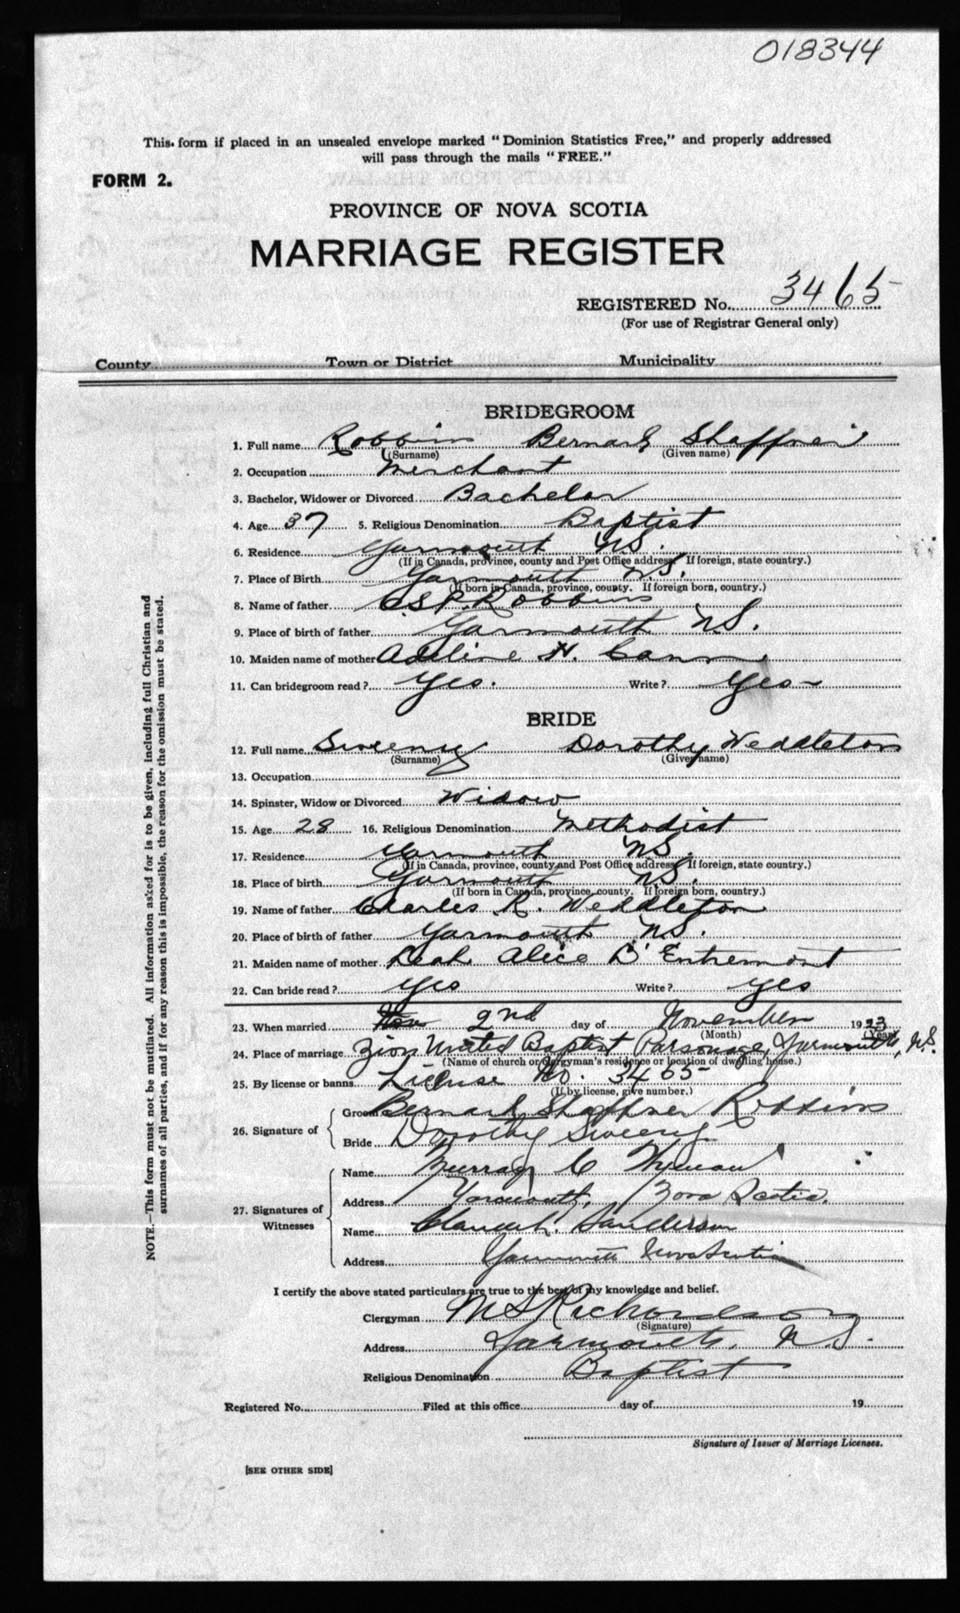 018344
This form if placed in an unsealed envelope marked "Dominion Statistics Free," and properly addressed
will pass through the mails "FREE."
FORM 2.
PROVINCE OF NOVA SCOTIA
MARRIAGE REGISTER
REGISTERED No. 3465
(For use of Registrar General only)
County Town or District Municipality
BRIDEGROOM
1. Full name Robbins Bernard Shaffner
(Surname) (Given name)
2. Occupation Merchant
3. Bachelor, Widower or Divorced Bachelor
4. Age 37 5. Religious Denomination Baptist
6. Residence Yarmouth N.S.
(If in Canada, province, county and Post Office address. If foreign, state country.)
7. Place of Birth Yarmouth N.S.
(If born in Canada, province, county. If foreign born, country.)
8. Name of father C.S.P. Robbins
9. Place of birth of father Yarmouth N.S.
10. Maiden name of mother Adeline H. Cann
11. Can bridegroom read? Yes. Write? Yes
BRIDE
12. Full name Sweeny Dorothy Weddleton
(Surname) (Given name)
13. Occupation
14. Spinster, Widow or Divorced Widow
15. Age 28 16. Religious Denomination Methodist
17. Residence Yarmouth N.S.
(If in Canada, province, county and Post Office address. If foreign, state country.)
18. Place of birth Yarmouth N.S.
(If born in Canada, province, county. If foreign born, country.)
19. Name of father Charles R. Weddleton
20. Place of birth of father Yarmouth N.S.
21. Maiden name of mother Leah Alice D'Entremont
22. Can bride read? Yes Write? Yes
23. When married 2nd day of November 1923
(Month) (Year)
24. Place of marriage Zion United Baptist Parsonage, Yarmouth, N.S.
(Name of church or clergyman's residence or location of dwelling house.)
25. By license or banns License No. 3465
(If by license, give number.)
26. Signature of
Groom Bernard Shaffner Robbins
Bride Dorothy Sweeny
27. Signatures of Witnesses
Name Murray C Wyman
Address Yarmouth, Nova Scotia.
Name Sanderson
Address Yarmouth Nova Scotia
I certify the above stated particulars are true to the best of my knowledge and belief.
Clergyman M S Richardson
(Signature)
Address Yarmouth, N.S.
Religious Denomination Baptist
Registered No. Filed at this office day of 19
Signature of Issuer of Marriage Licenses.
[SEE OTHER SIDE]
NOTE.—This form must not be mutilated. All information asked for is to be given, including full Christian and
surnames of all parties, and if for any reason this is impossible, the reason for the omission must be stated.